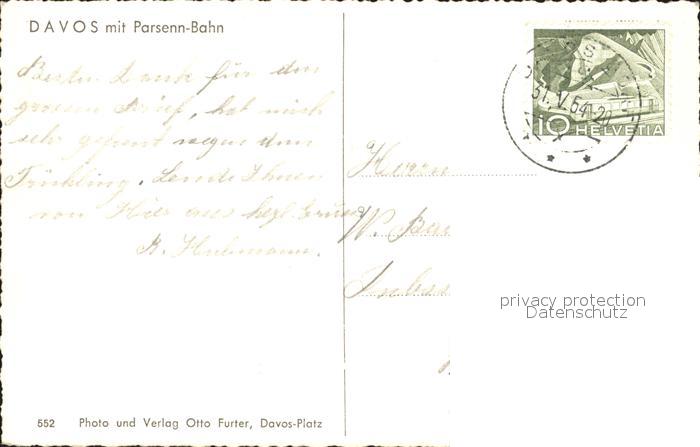 DAVOS mit Parsenn-Bahn
Besten Dank für den
grossen Brief, hat mich
sehr gefreut wegen dem
Frühling. Sende Ihnen
von Hier aus herzl. Grüsse
Herrn
W.
31.V.54-20
10 HELVETIA
privacy protection
Datenschutz
552 Photo und Verlag Otto Furter, Davos-Platz